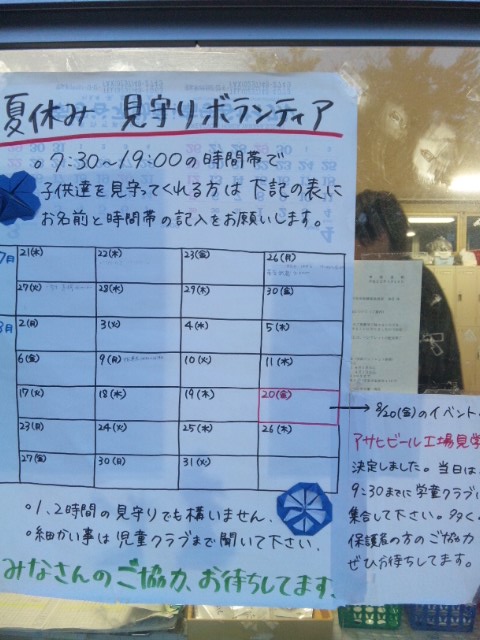 夏休み 見守りボランティア
○9:30~19:00の時間帯で
子供達を見守ってくれる方は下記の表に
お名前と時間帯の記入をお願いします。
7月 21(水) 22(木) 23(金) 26(月)
27(火) 28(水) 29(木) 30(金)
8月 2(月) 3(火) 4(水) 5(木)
6(金) 9(月) 10(火) 11(水)
17(火) 18(水) 19(木) 20(金)
23(月) 24(火) 25(水) 26(木)
27(金) 30(月) 31(火)
→ 8/20(金)のイベント
アサヒビール工場見学
決定しました。当日は
9:30までに学童クラブに
集合して下さい。多く
保護者の方のご協力
ぜひお待ちしてます。
○1、2時間の見守りでも構いません。
○細かい事は児童クラブまで聞いて下さい。
みなさんのご協力、お待ちしてます。